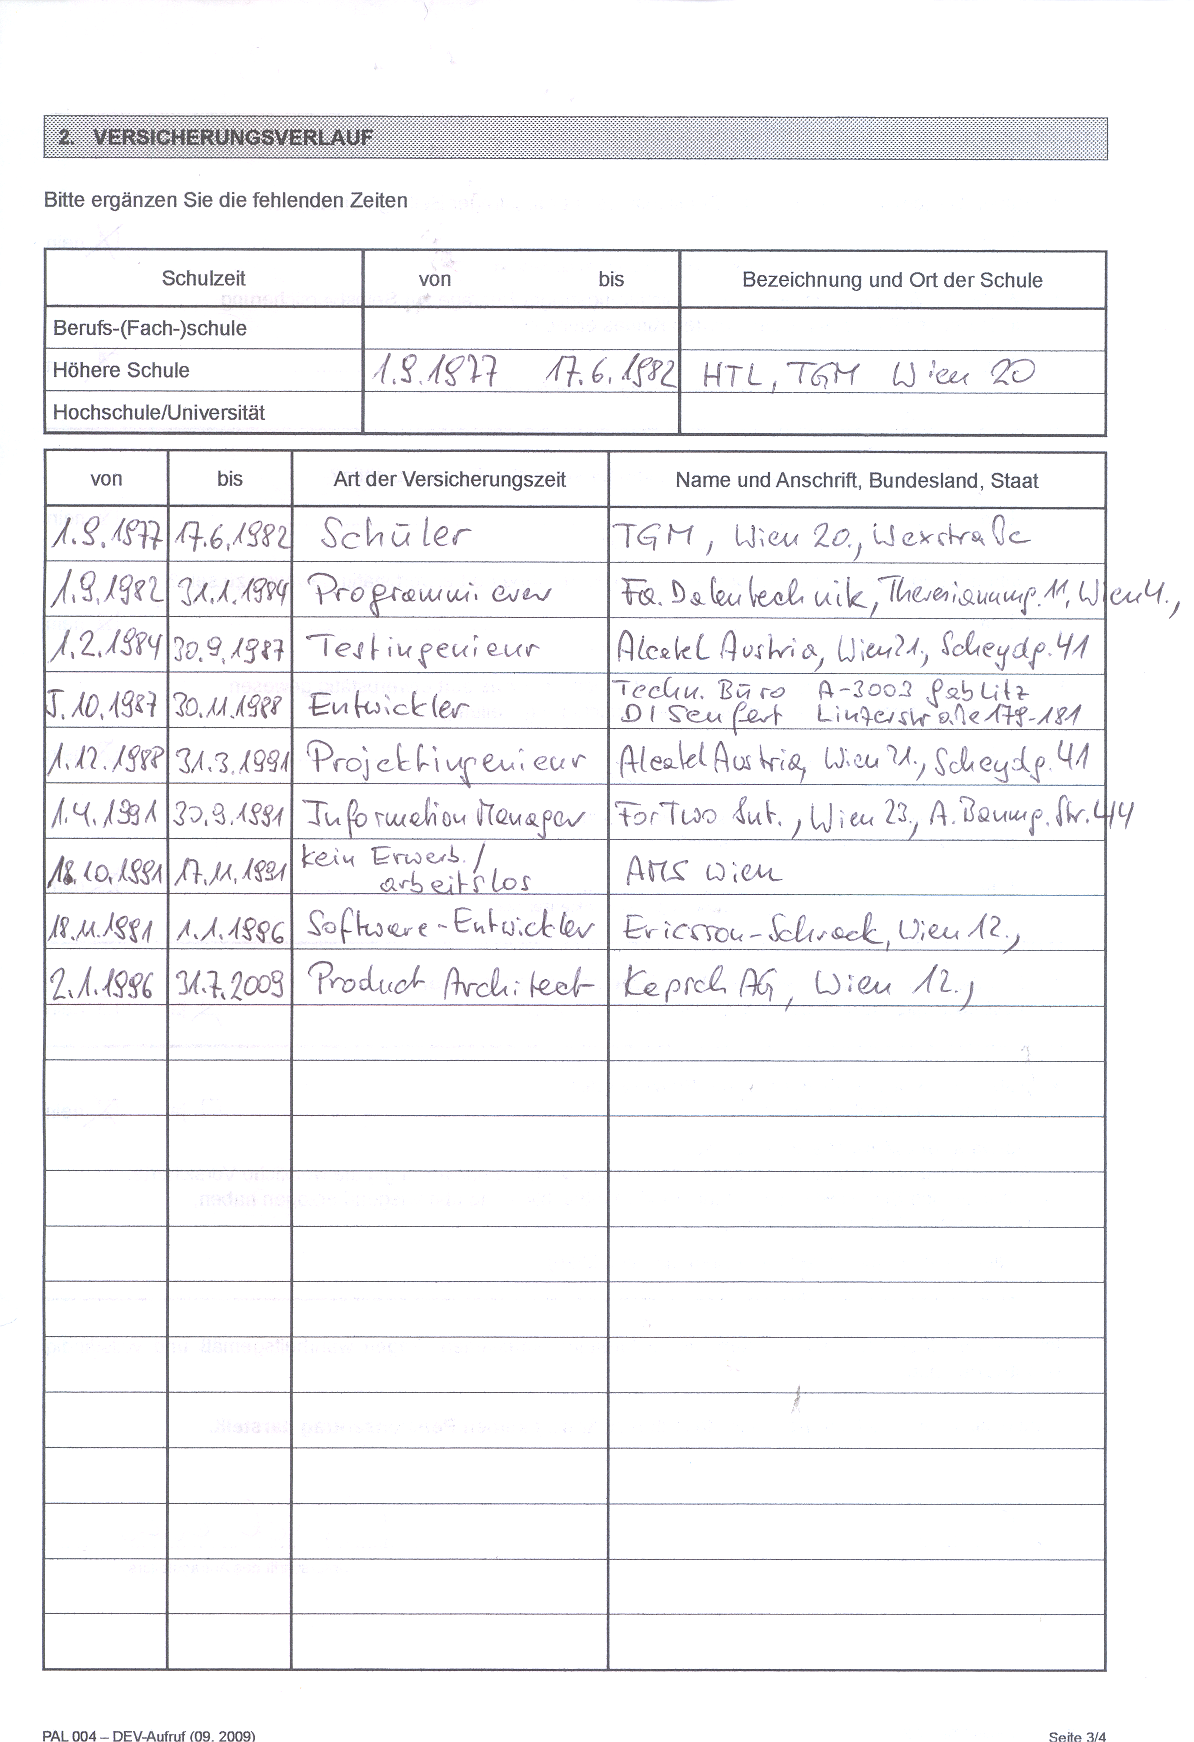 2. VERSICHERUNGSVERLAUF
Bitte ergänzen Sie die fehlenden Zeiten
Schulzeit von bis Bezeichnung und Ort der Schule
Berufs-(Fach-)schule
Höhere Schule 1.9.1977 17.6.1982 HTL, TGM Wien 20
Hochschule/Universität
von bis Art der Versicherungszeit Name und Anschrift, Bundesland, Staat
1.9.1977 17.6.1982 Schüler TGM, Wien 20., Wexstraße
1.9.1982 31.1.1984 Programmierer Fa. Datentechnik, Theresianumg. 11, Wien 4.,
1.2.1984 30.9.1987 Testingenieur Alcatel Austria, Wien 21., Scheydg. 41
5.10.1987 30.11.1988 Entwickler Techn. Büro A-3003 Gablitz
DI Senfert Linzerstraße 179-181
1.12.1988 31.3.1991 Projektingenieur Alcatel Austria, Wien 21., Scheydg. 41
1.4.1991 30.9.1991 Information Manager ForTwo Int., Wien 23., A. Baumg. Str. 44
18.10.1991 17.11.1991 kein Erwerb. / AMS Wien
arbeitslos
18.11.1991 1.1.1996 Software-Entwickler Ericsson-Schrack, Wien 12.,
2.1.1996 31.7.2009 Product Architect Kapsch AG, Wien 12.,
PAL 004 – DEV-Aufruf (09. 2009) Seite 3/4